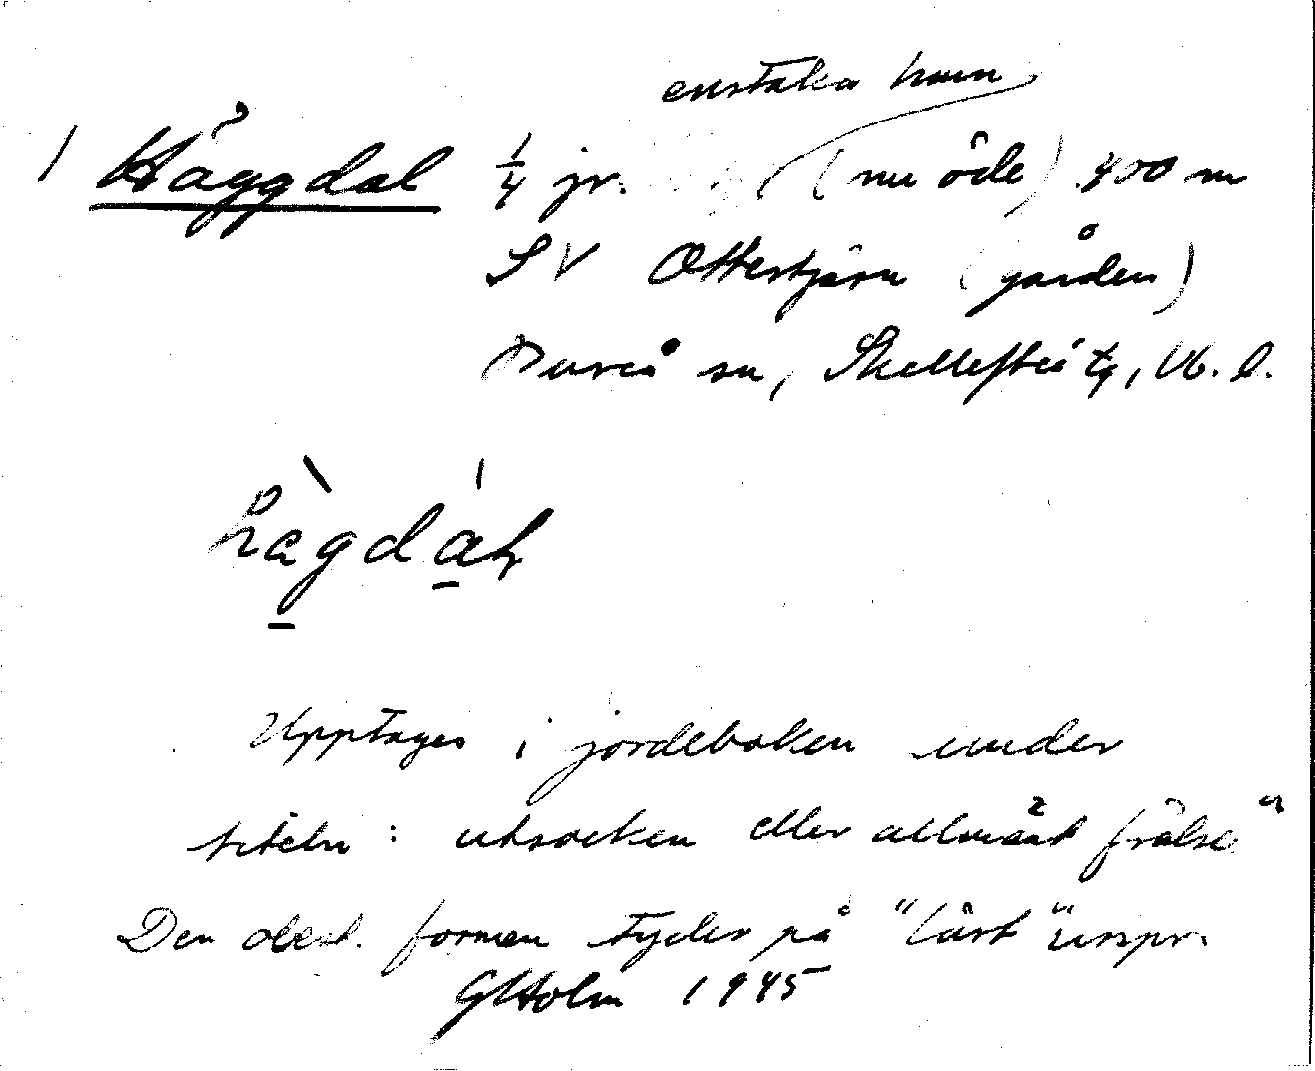 enstaka hem
1 Häggdal 1/4 jr. (nu öde) 400 m
SV Ottertjärn (gården)
Bureå sn, Skellefteå tg, Vb. l.
hägdàl
Upptages i jordeboken under
titeln: utsocken eller allmänt frälse"
Den obest. formen tyder på "lärt" urspr.
GHolm 1945